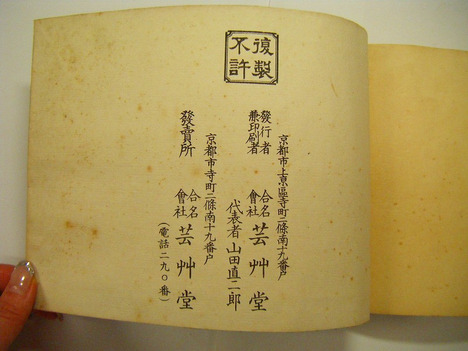 復製
不許
京都市上京區寺町二條南十九番戸
發行者
兼印刷者
合名
會社
芸艸堂
代表者山田直二郎
京都市寺町二條南十九番戸
發賣所
合名
會社
芸艸堂
(電話二九〇番)